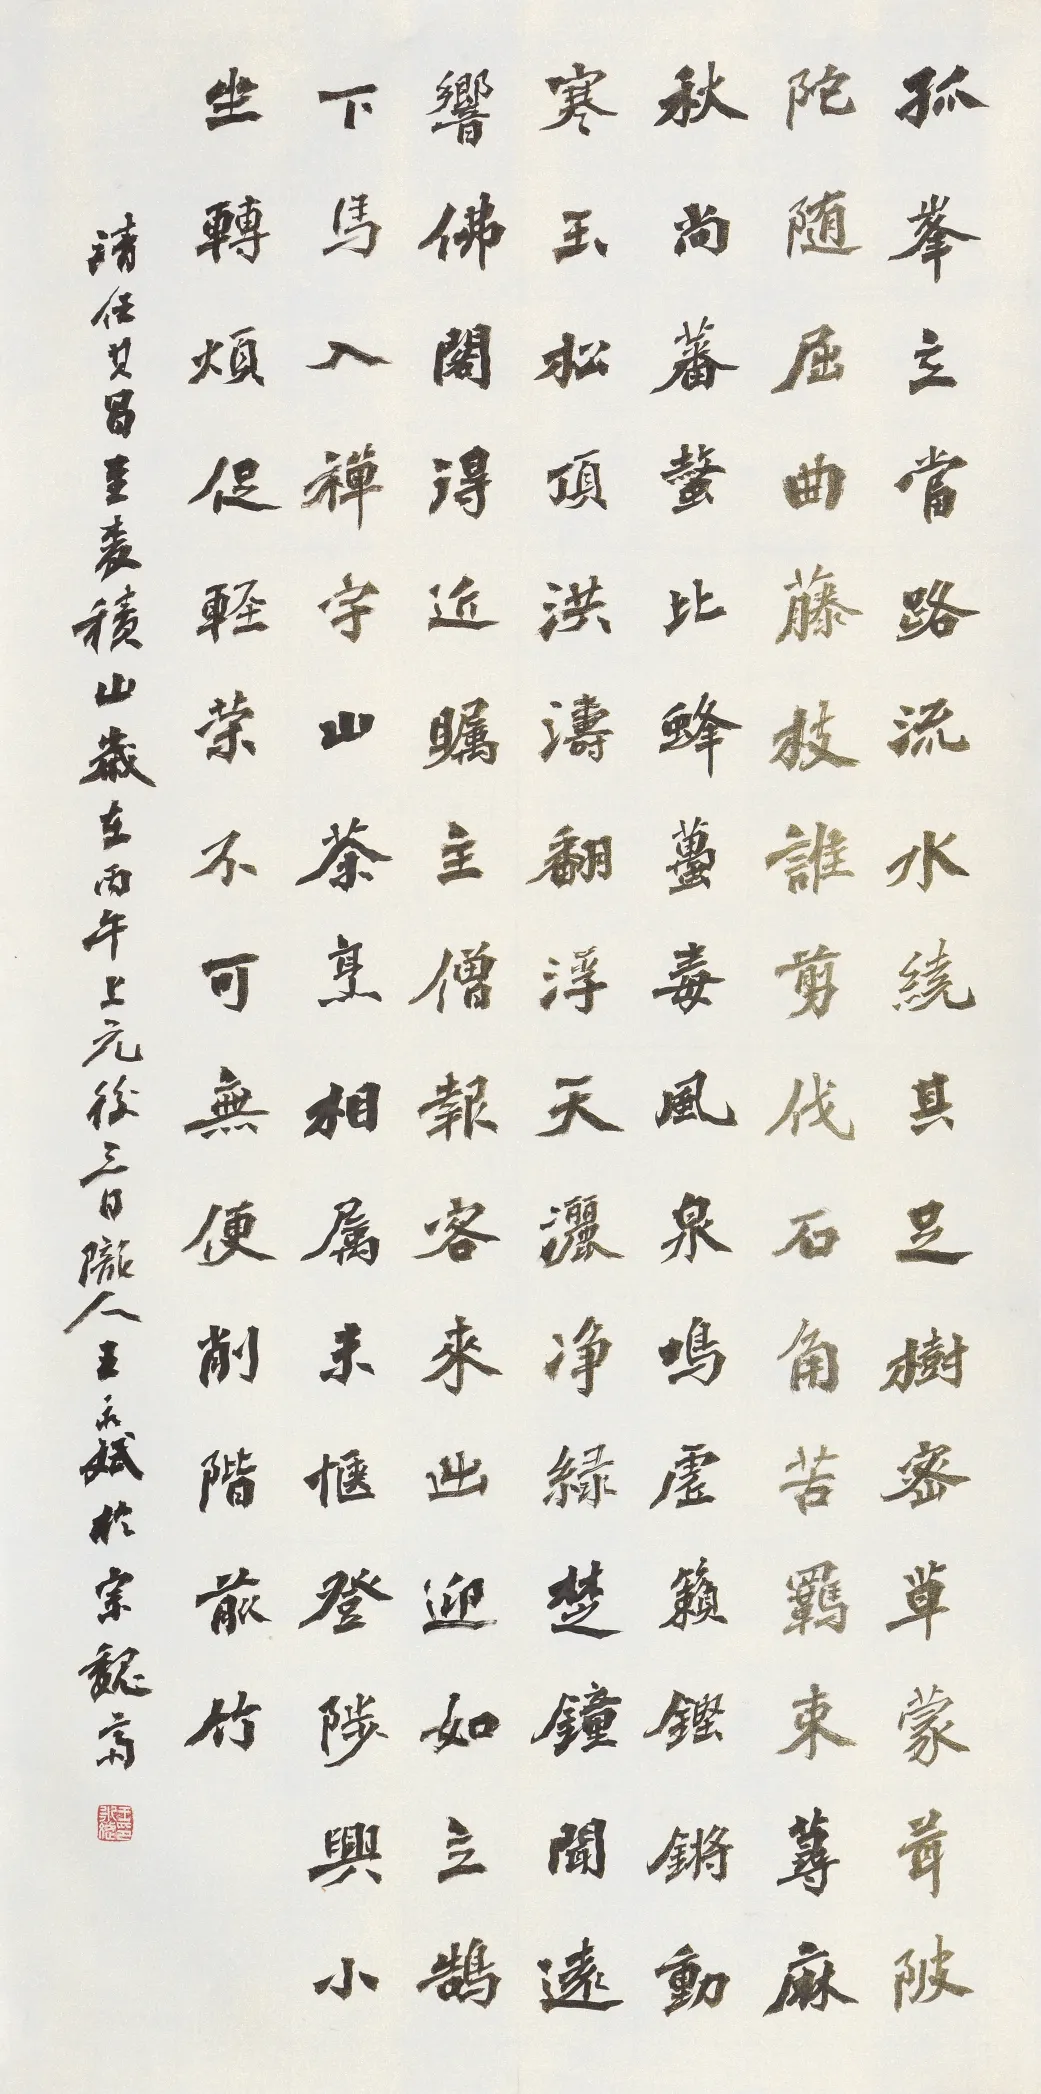 孤峯立當路流水繞其足樹密草蒙茸陂
陀随屈曲藤枝誰剪伐石角苦羈束蕁麻
秋尚蕃螫比蜂蠆毒風泉鳴虛籟鏗鏘動
寒玉松頂洪濤翻浮天灑净緑楚鐘聞遠
響佛閣得近矚主僧報客來出迎如立鵠
下馬入禪宇山茶烹相属未愜登陟興小
坐轉煩促輕荣不可無便削階前竹
請任其昌至麦積山歲在丙午上元後三日隴人王永斌於宗魏斋